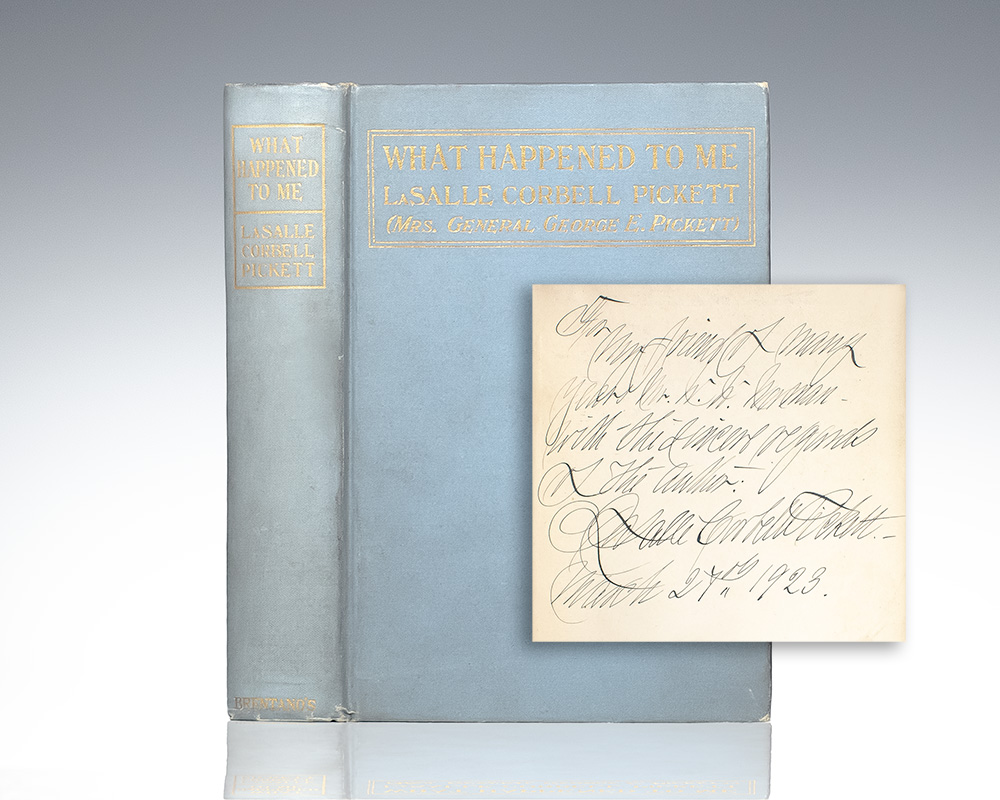 WHAT
HAPPENED
TO ME
LASALLE
CORBELL
PICKETT
BRENTANO'S
WHAT HAPPENED TO ME
LASALLE CORBELL PICKETT
(MRS. GENERAL GEORGE E. PICKETT)
For
my friend of many
years
with the sincere regards
of the author.
LaSalle Corbell Pickett.
March 27th 1923.